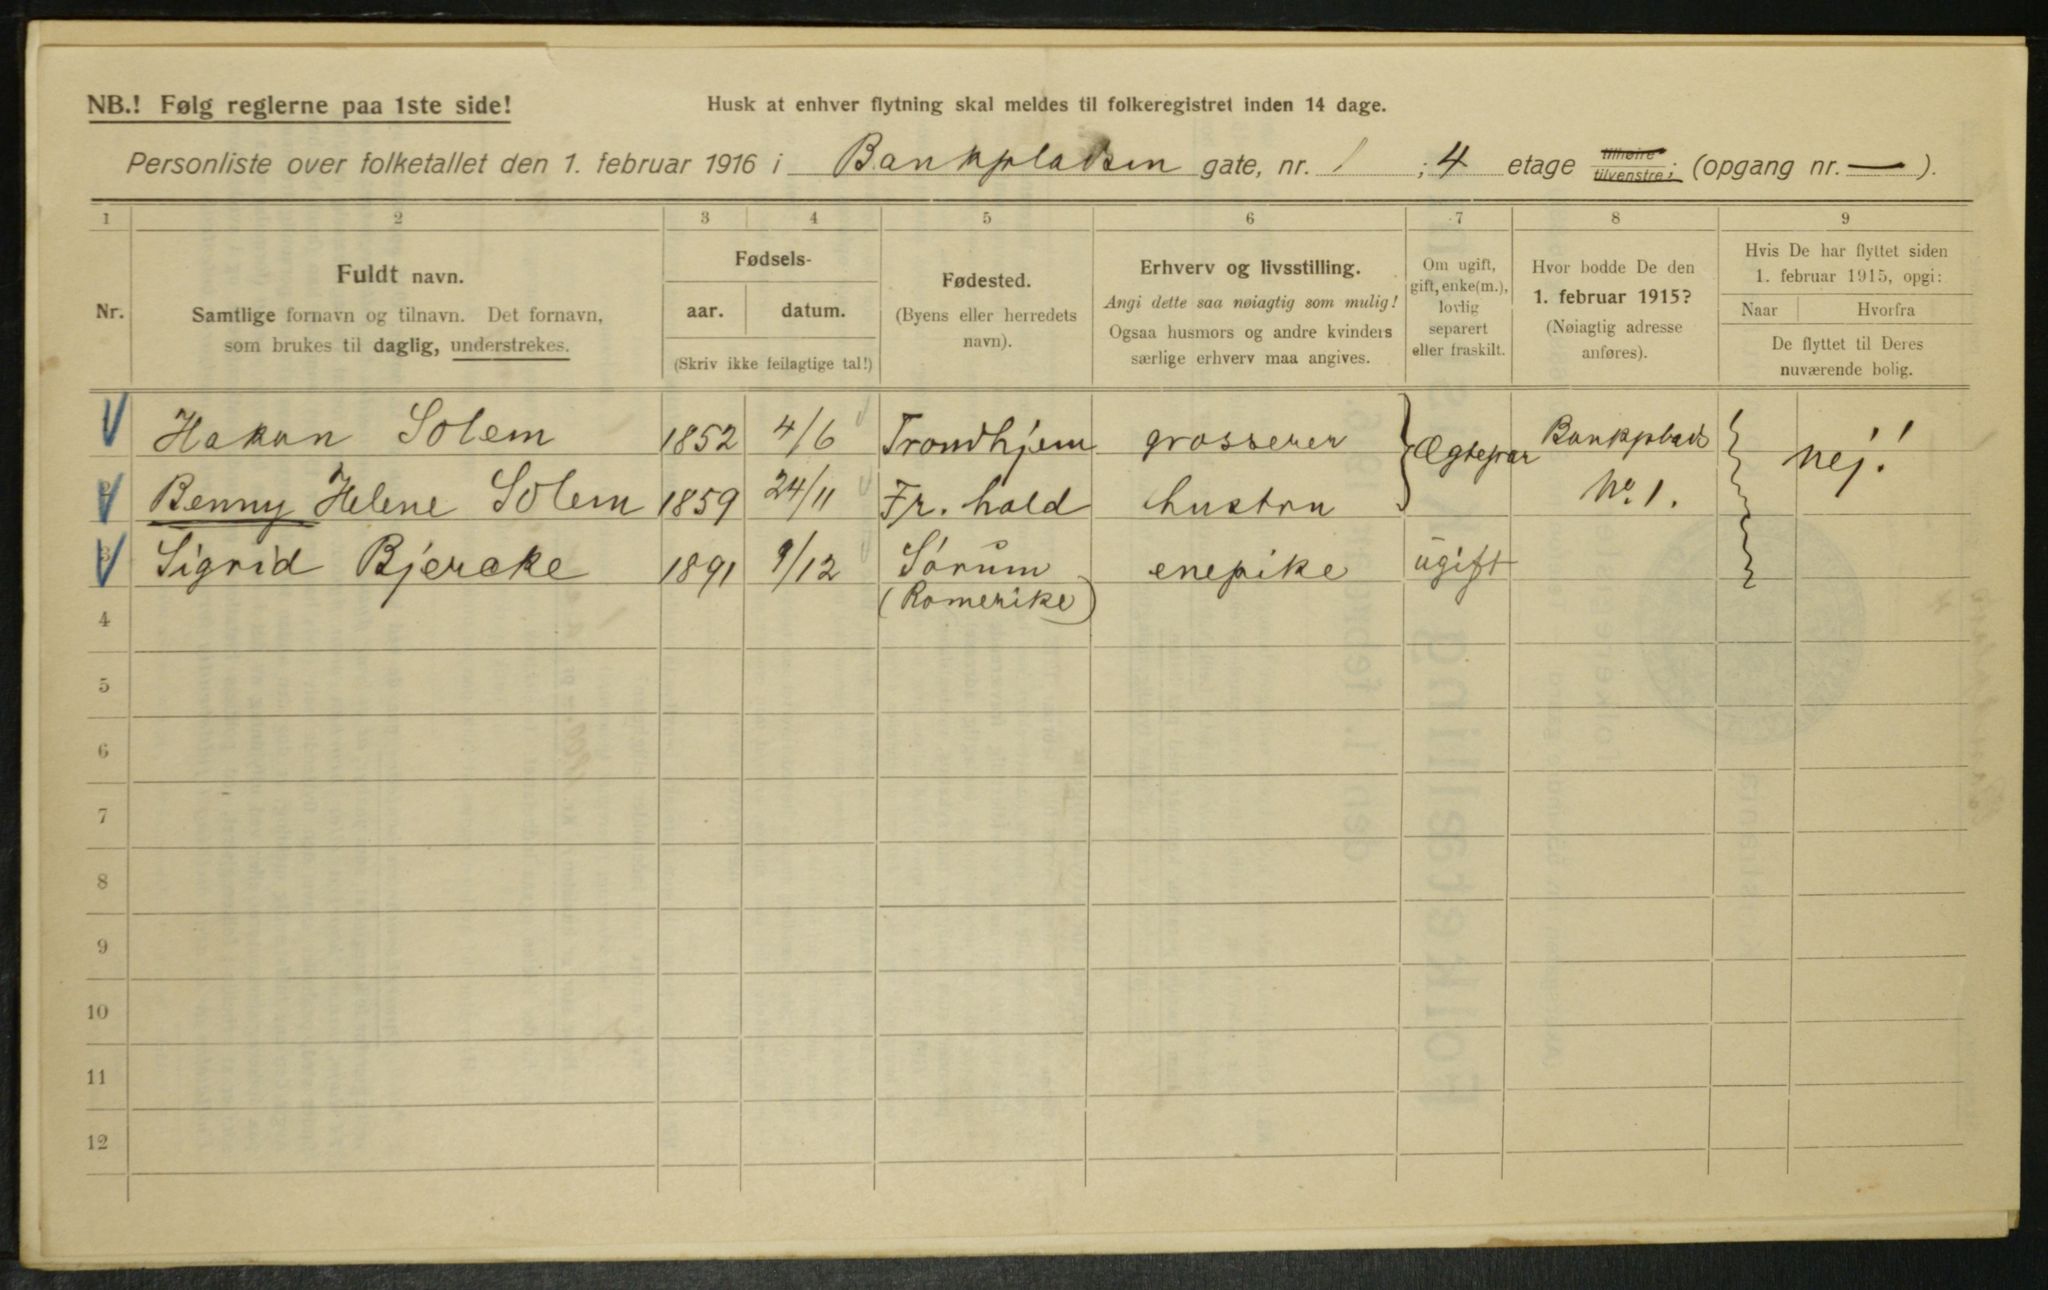 NB.! Følg reglerne paa 1ste side!
Husk at enhver flytning skal meldes til folkeregistret inden 14 dage.
Personliste over folketallet den 1. februar 1916 i Bankpladsen gate, nr. 1 ; 4 etage tilhøire tilvenstre; (opgang nr. — ).
1 2 3 4 5 6 7 8 9
Nr.
Fuldt navn.
Samtlige fornavn og tilnavn. Det fornavn,
som brukes til daglig, understrekes.
Fødsels-
aar. datum.
(Skriv ikke feilagtige tal!)
Fødested.
(Byens eller herredets
navn).
Erhverv og livsstilling.
Angi dette saa nøiagtig som mulig!
Ogsaa husmors og andre kvinders
særlige erhverv maa angives.
Om ugift,
gift, enke(m.),
lovlig
separert
eller fraskilt.
Hvor bodde De den
1. februar 1915?
(Nøiagtig adresse
anføres).
Hvis De har flyttet siden
1. februar 1915, opgi:
Naar Hvorfra
De flyttet til Deres
nuværende bolig.
Hakon Solem 1852 4/6 Trondhjem grosserer Ægtepar Bankplads nej!
Benny Helene Solem 1859 24/11 Fr. hald hustru No 1.
3 Sigrid Bjercke 1891 9/12 Sørum enepike ugift
(Romerike)
4
5
6
7
8
9
10
11
12